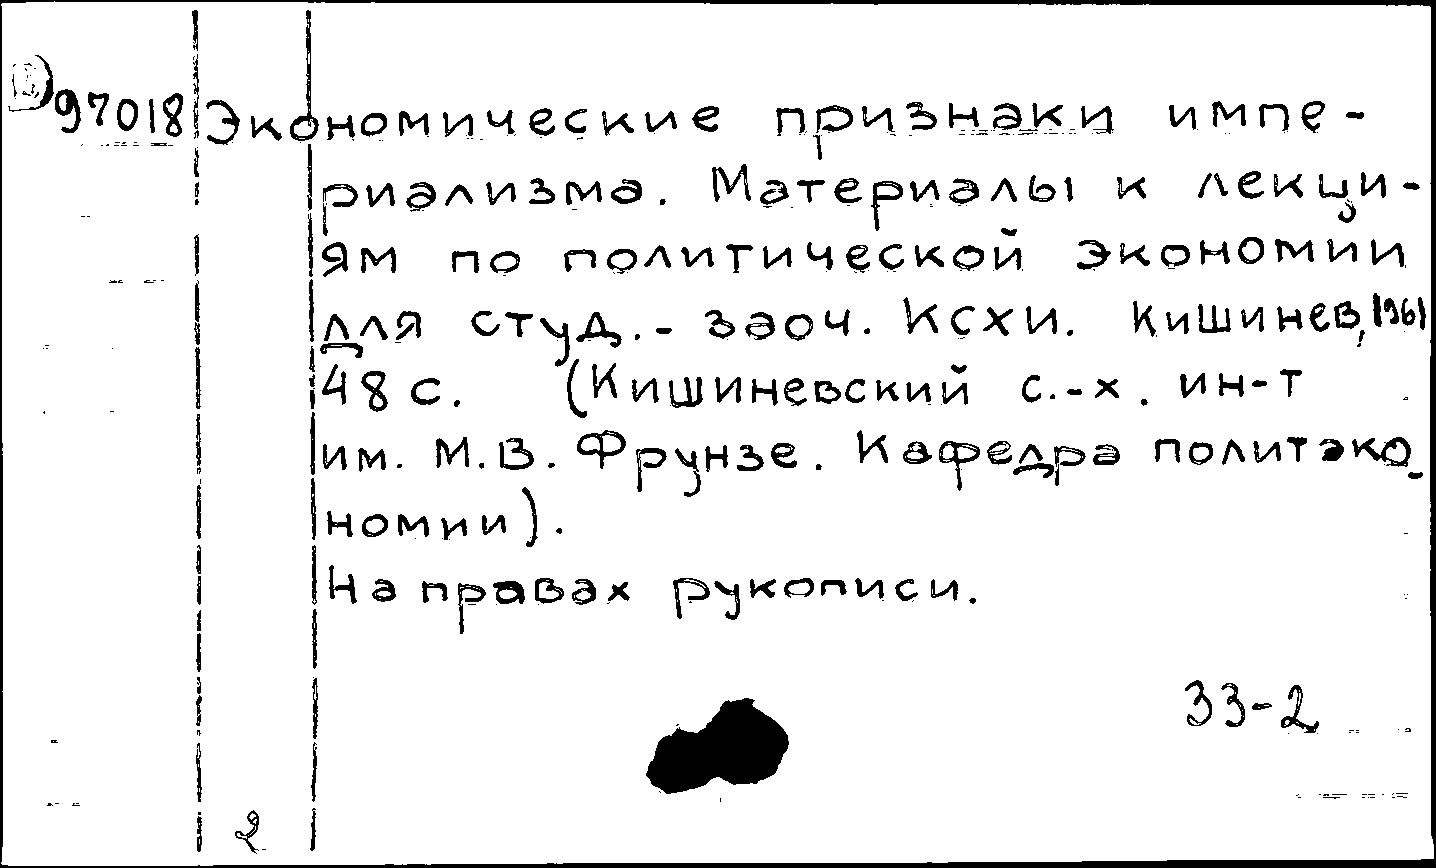 97018 Экономические признаки импе-
риализма. Материалы к лекци-
ям по политической экономии
для студ.- заоч. КСХИ. Кишинев, 1961
48 с. (Кишиневский с.-х. ин-т
им. М.В. Фрунзе. Кафедра политэко-
номии).
На правах рукописи.
33-2
2